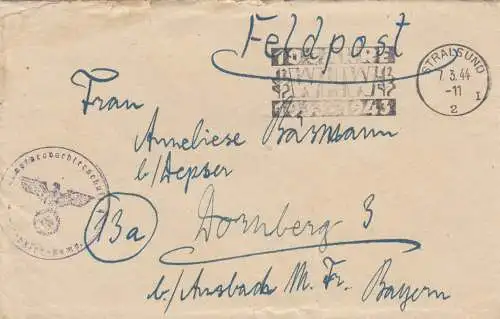 Feldpost
STRALSUND
7.3.44
-11
2 I
Frau
Anneliese Bärmann
b/Depser
13a
Dornberg 3
b./Ansbach M. Fr. Bayern